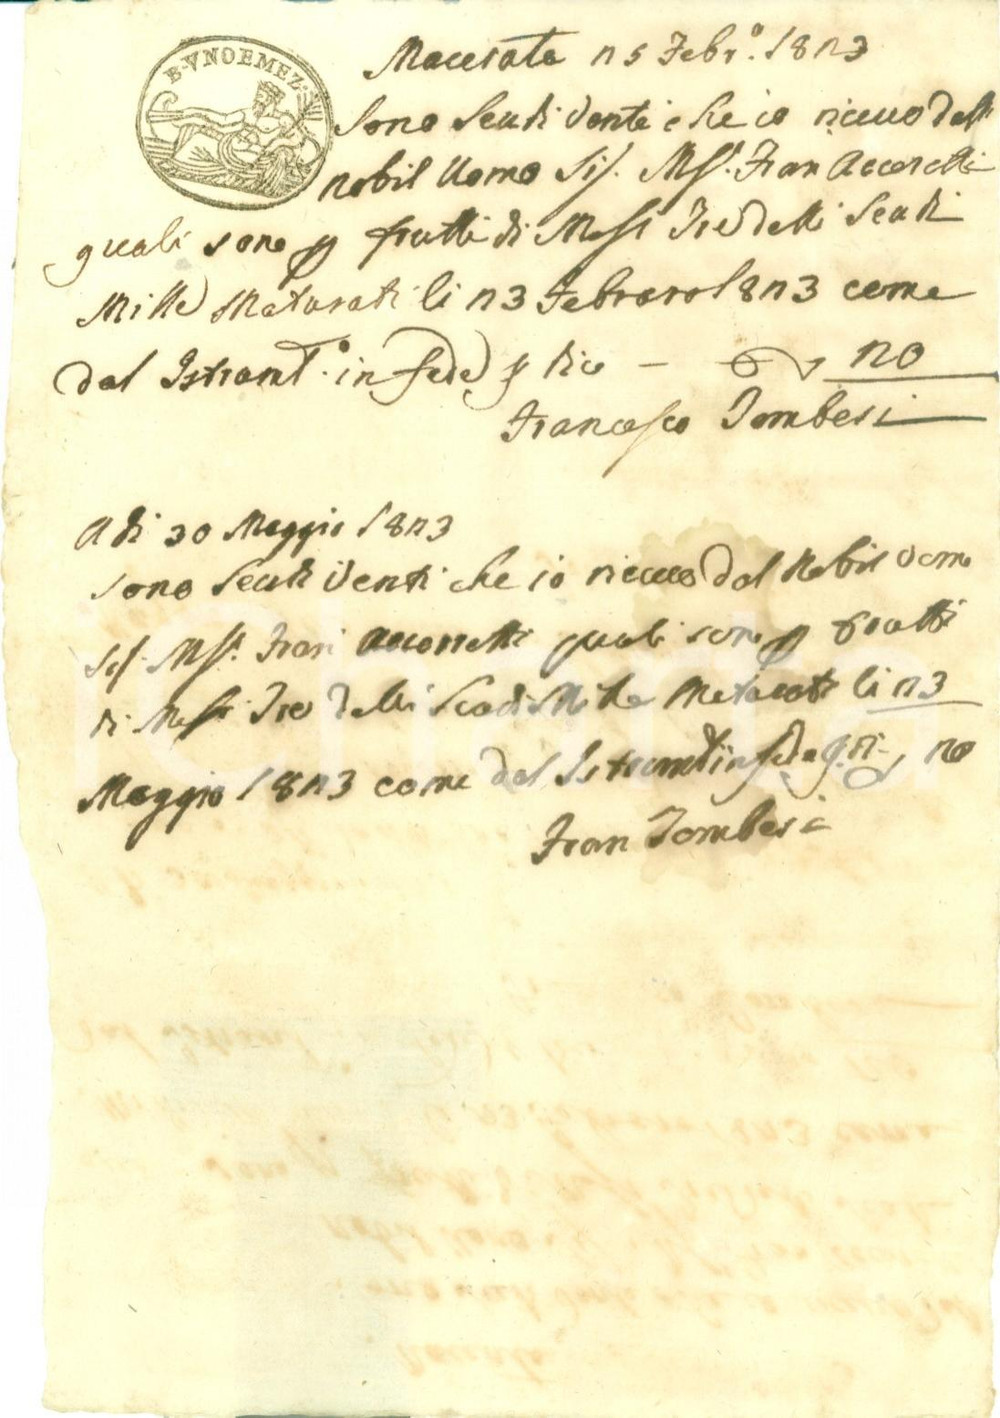 B. VNOEMEZ.
Macerata 25 Febr.º 1823
Sono Scudi Venti che io ricevo dall
nobil Uomo Sig. Mse. Fran Accorretti
quali sono p frutti di Mesi Tre delli Scudi
Mille Maturati li 23 Febraro 1823 come
dal Istromt.º in fede p dico — 20
Francesco Tombesi
A di 30 Maggio 1823
Sono Scudi Venti che io ricevo dal Nobil Uomo
Sig. Mse. Fran Accorretti quali sono p Frutti
di Mesi Tre delli Scudi Mille Maturati li 23
Maggio 1823 come dal Istromt in fede 20
Fran Tombesi